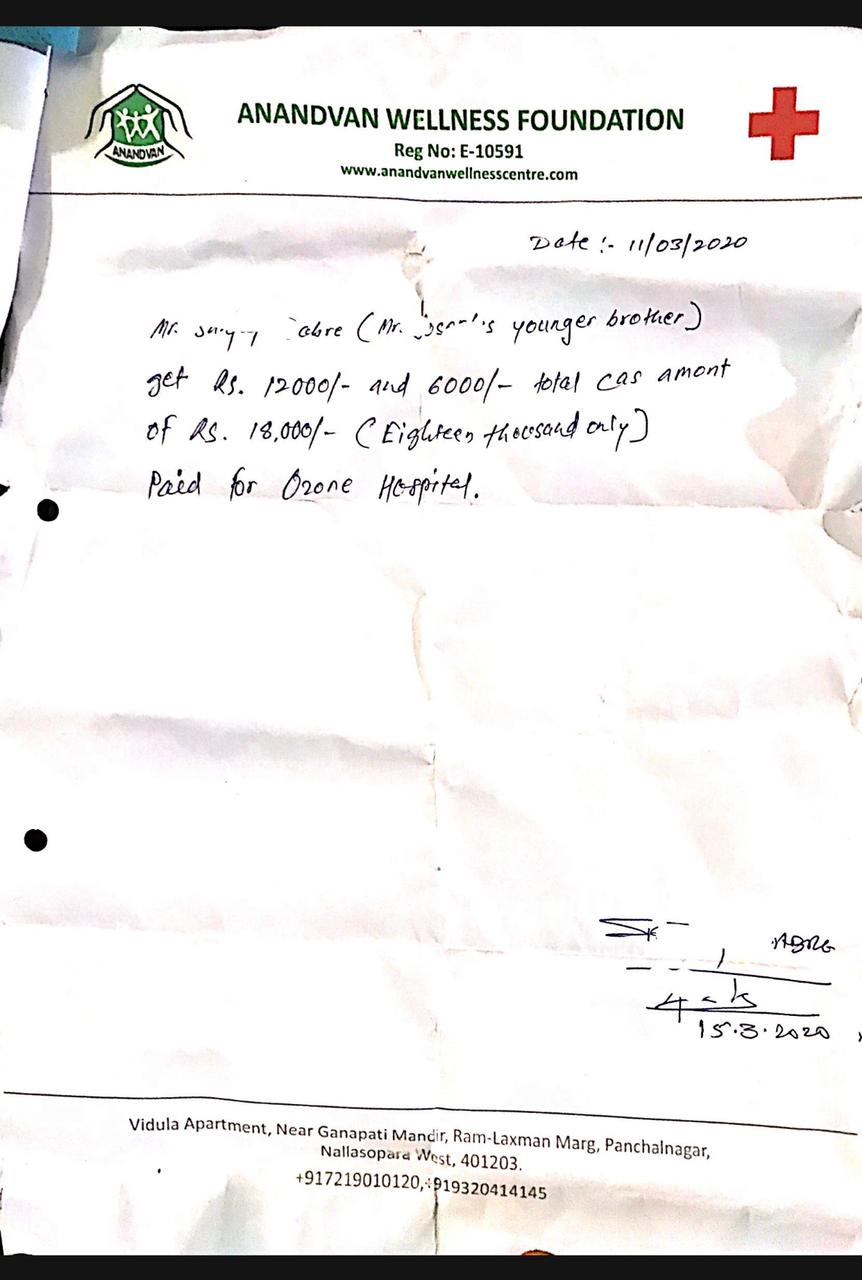 ANANDVAN
ANANDVAN WELLNESS FOUNDATION
Reg No: E-10591
www.anandvanwellnesscentre.com
Date :- 11/03/2020
Mr. (Mr. younger brother)
get Rs. 12000/- and 6000/- total cas amont
of Rs. 18,000/- (Eighteen thousand only)
Paid for Ozone Hospital.
15.3.2020
Vidula Apartment, Near Ganapati Mandir, Ram-Laxman Marg, Panchalnagar,
Nallasopara West, 401203.
+917219010120,+919320414145